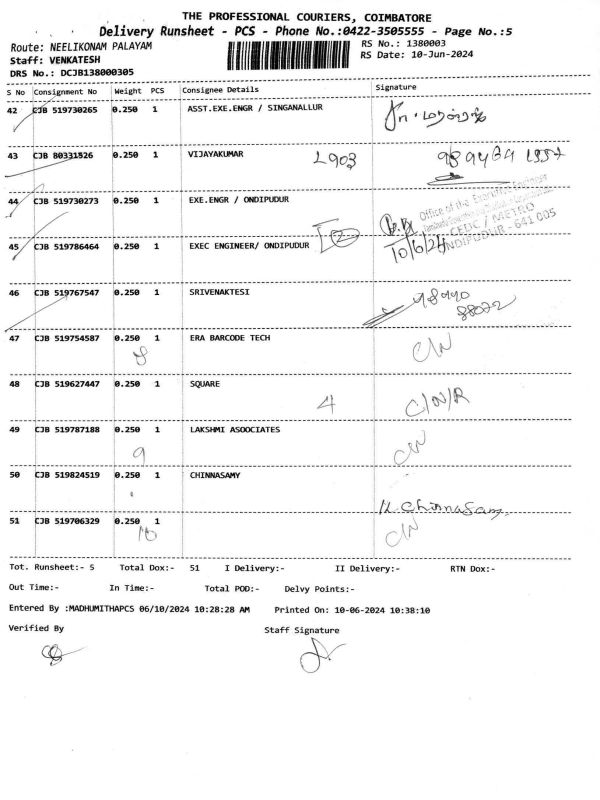 THE PROFESSIONAL COURIERS, COIMBATORE
Delivery Runsheet - PCS - Phone No.:0422-3505555 - Page No.:5
Route: NEELIKONAM PALAYAM RS No.: 1380003
Staff: VENKATESH RS Date: 10-Jun-2024
DRS No.: DCJB138000305
S No Consignment No Weight PCS Consignee Details Signature
42 CJB 519730265 0.250 1 ASST.EXE.ENGR / SINGANALLUR
43 CJB 80331526 0.250 1 VIJAYAKUMAR L903
44 CJB 519730273 0.250 1 EXE.ENGR / ONDIPUDUR
Office of the Executive Engineer
CEDC / METRO
ONDIPUDUR - 641 005
45 CJB 519786464 0.250 1 EXEC ENGINEER/ ONDIPUDUR 2 10/6/24
46 CJB 519767547 0.250 1 SRIVENAKTESI
47 CJB 519754587 0.250 1 ERA BARCODE TECH C/N
8
48 CJB 519627447 0.250 1 SQUARE 4 C/N/R
49 CJB 519787188 0.250 1 LAKSHMI ASOOCIATES C/N
9
50 CJB 519824519 0.250 1 CHINNASAMY
K. Chinnasamy
51 CJB 519706329 0.250 1 C/N
10
Tot. Runsheet:- 5 Total Dox:- 51 I Delivery:- II Delivery:- RTN Dox:-
Out Time:- In Time:- Total POD:- Delvy Points:-
Entered By :MADHUMITHAPCS 06/10/2024 10:28:28 AM Printed On: 10-06-2024 10:38:10
Verified By Staff Signature